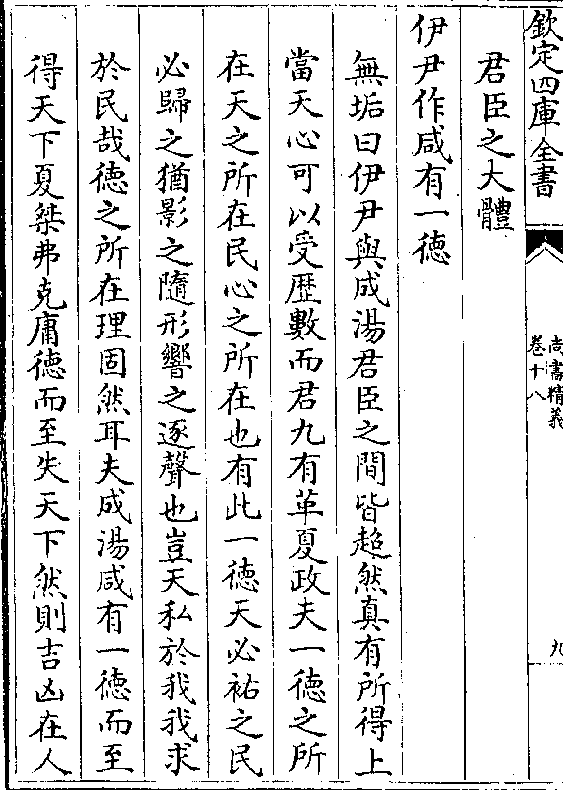 欽定四庫全書
尚書精義
卷十八
九
君臣之大體
伊尹作咸有一德
無垢曰伊尹與成湯君臣之間皆超然真有所得上
當天心可以受歷數而君九有革夏政夫一德之所
在天之所在民心之所在也有此一德天必祐之民
必歸之猶影之隨形響之逐聲也豈天私於我我求
於民哉德之所在理固然耳夫成湯咸有一德而至
得天下夏桀弗克庸德而至失天下然則吉凶在人